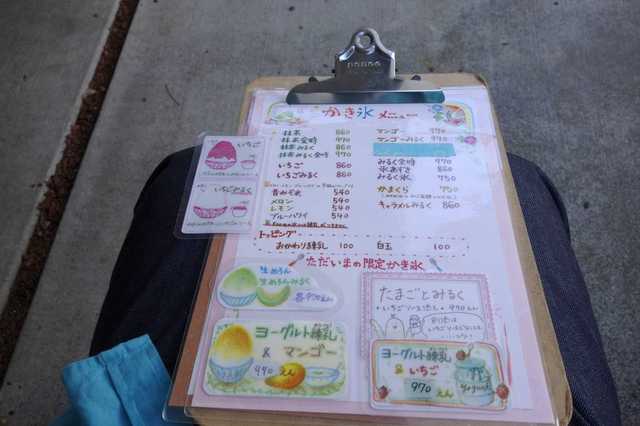 かき氷メニュー
抹茶 860
抹茶金時 970
抹茶みるく 860
抹茶みるく金時 970
いちご 860
いちごみるく 860
昔みぞれ 540
メロン 540
レモン 540
ブルーハワイ 540
マンゴー 970
マンゴーみるく 970
みるく金時 970
氷あずき 860
みるく氷 750
かまくら 750
キャラメルみるく 860
トッピング
おかわり練乳 100 白玉 100
ただいまの限定かき氷
いちご
いちごみるく
生めろん
生めろんみるく
たまごとみるく
ヨーグルト練乳
&マンゴー
970えん
ヨーグルト練乳
&いちご
970